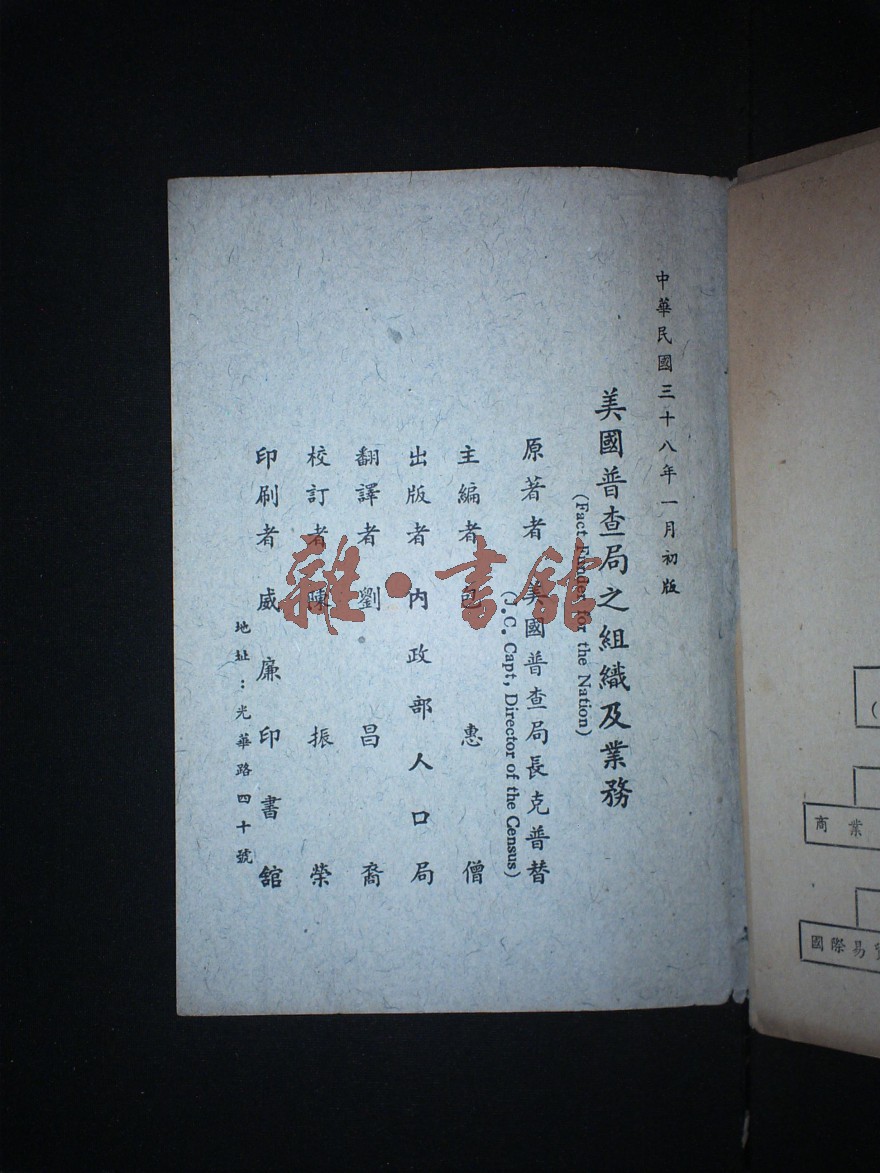 中華民國三十八年一月初版
美國普查局之組織及業務
(Fact Finder for the Nation)
原著者 美國普查局長克普替
(J. C. Capt, Director of the Census)
主編者 包惠僧
出版者 內政部人口局
翻譯者 劉昌裔
校訂者 陳振榮
印刷者 威廉印書舘
地址：光華路四十號
雜·書舘
(
商業
國際易